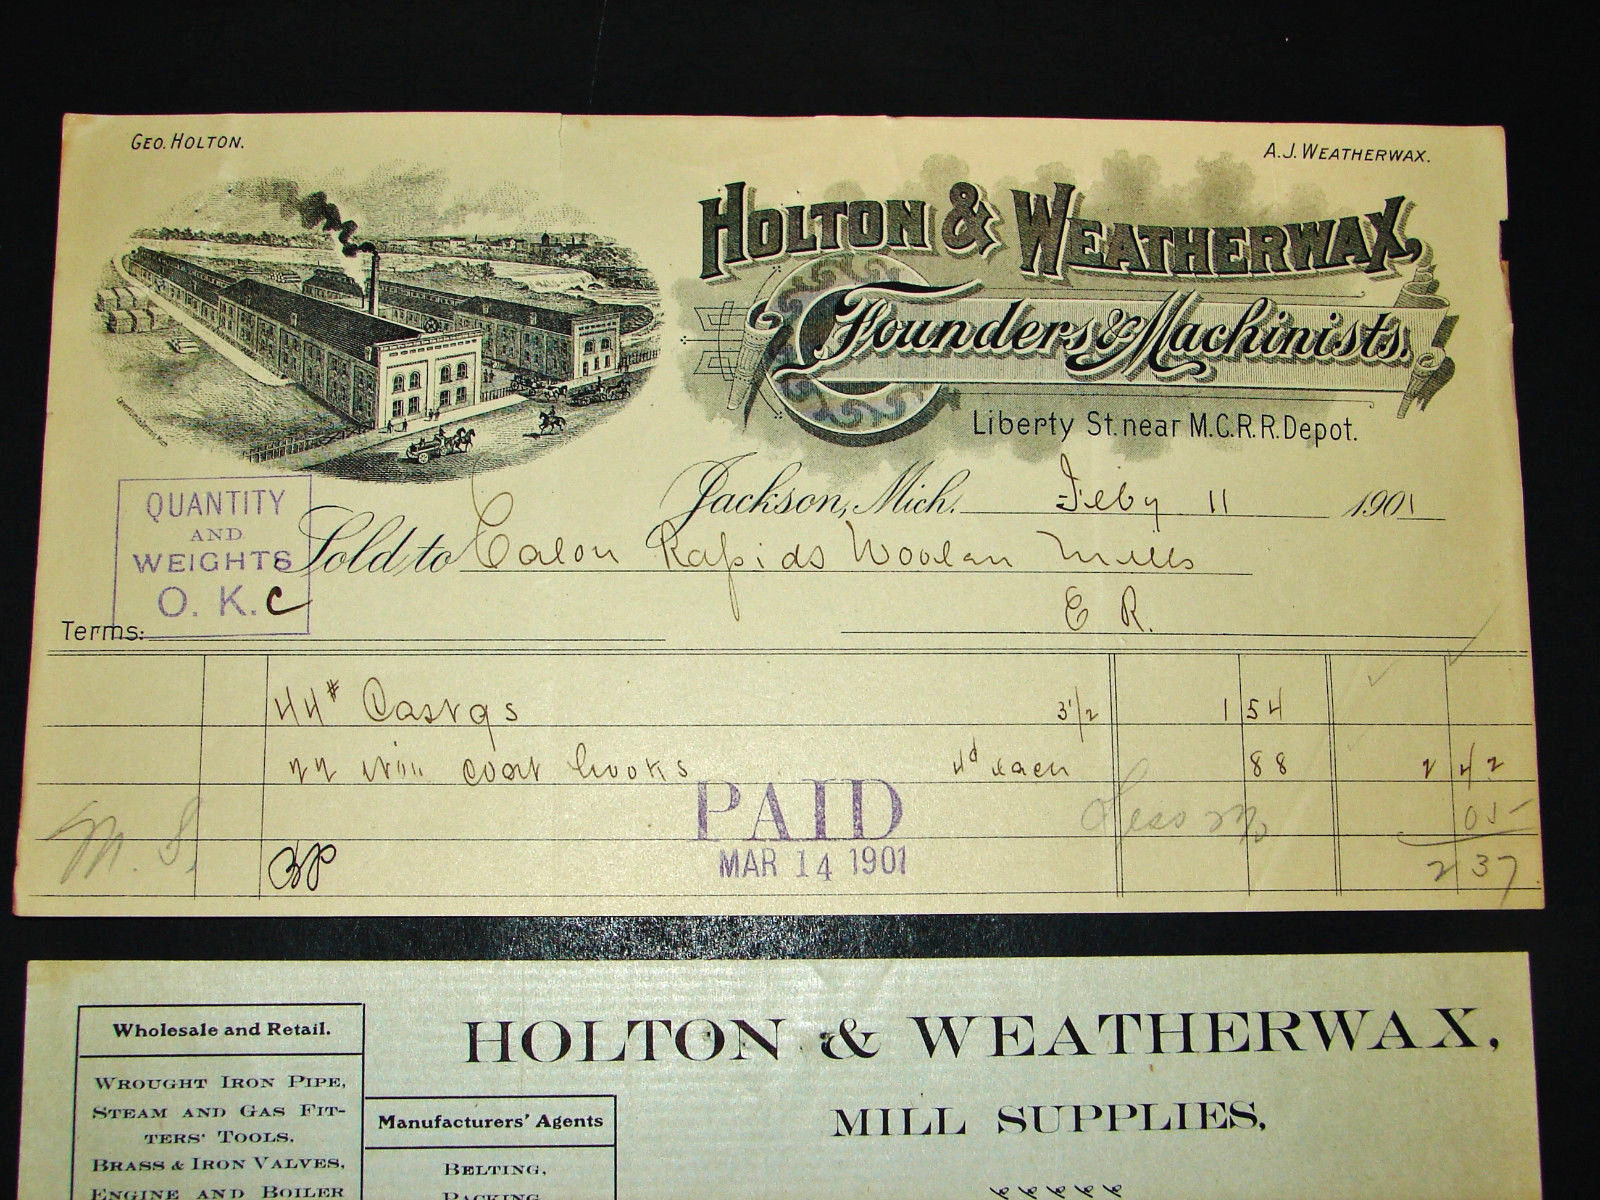 GEO. HOLTON.
A.J. WEATHERWAX.
HOLTON & WEATHERWAX,
Founders & Machinists.
Liberty St. near M.C.R.R. Depot.
Jackson, Mich. Feby 11 1901
QUANTITY
AND
WEIGHTS
O. K. C
Sold to Eaton Rapids Woolen Mills
E R.
Terms:
44# Castgs 3 1/2 1 54
22 iron coat hooks 4d each 88 2 42
PAID
Less 2% 05
M. S.
MAR 14 1901
2 37
HOLTON & WEATHERWAX,
MILL SUPPLIES,
Wholesale and Retail.
WROUGHT IRON PIPE,
STEAM AND GAS FIT-
TERS' TOOLS,
BRASS & IRON VALVES,
ENGINE AND BOILER
Manufacturers' Agents
BELTING,
PACKING